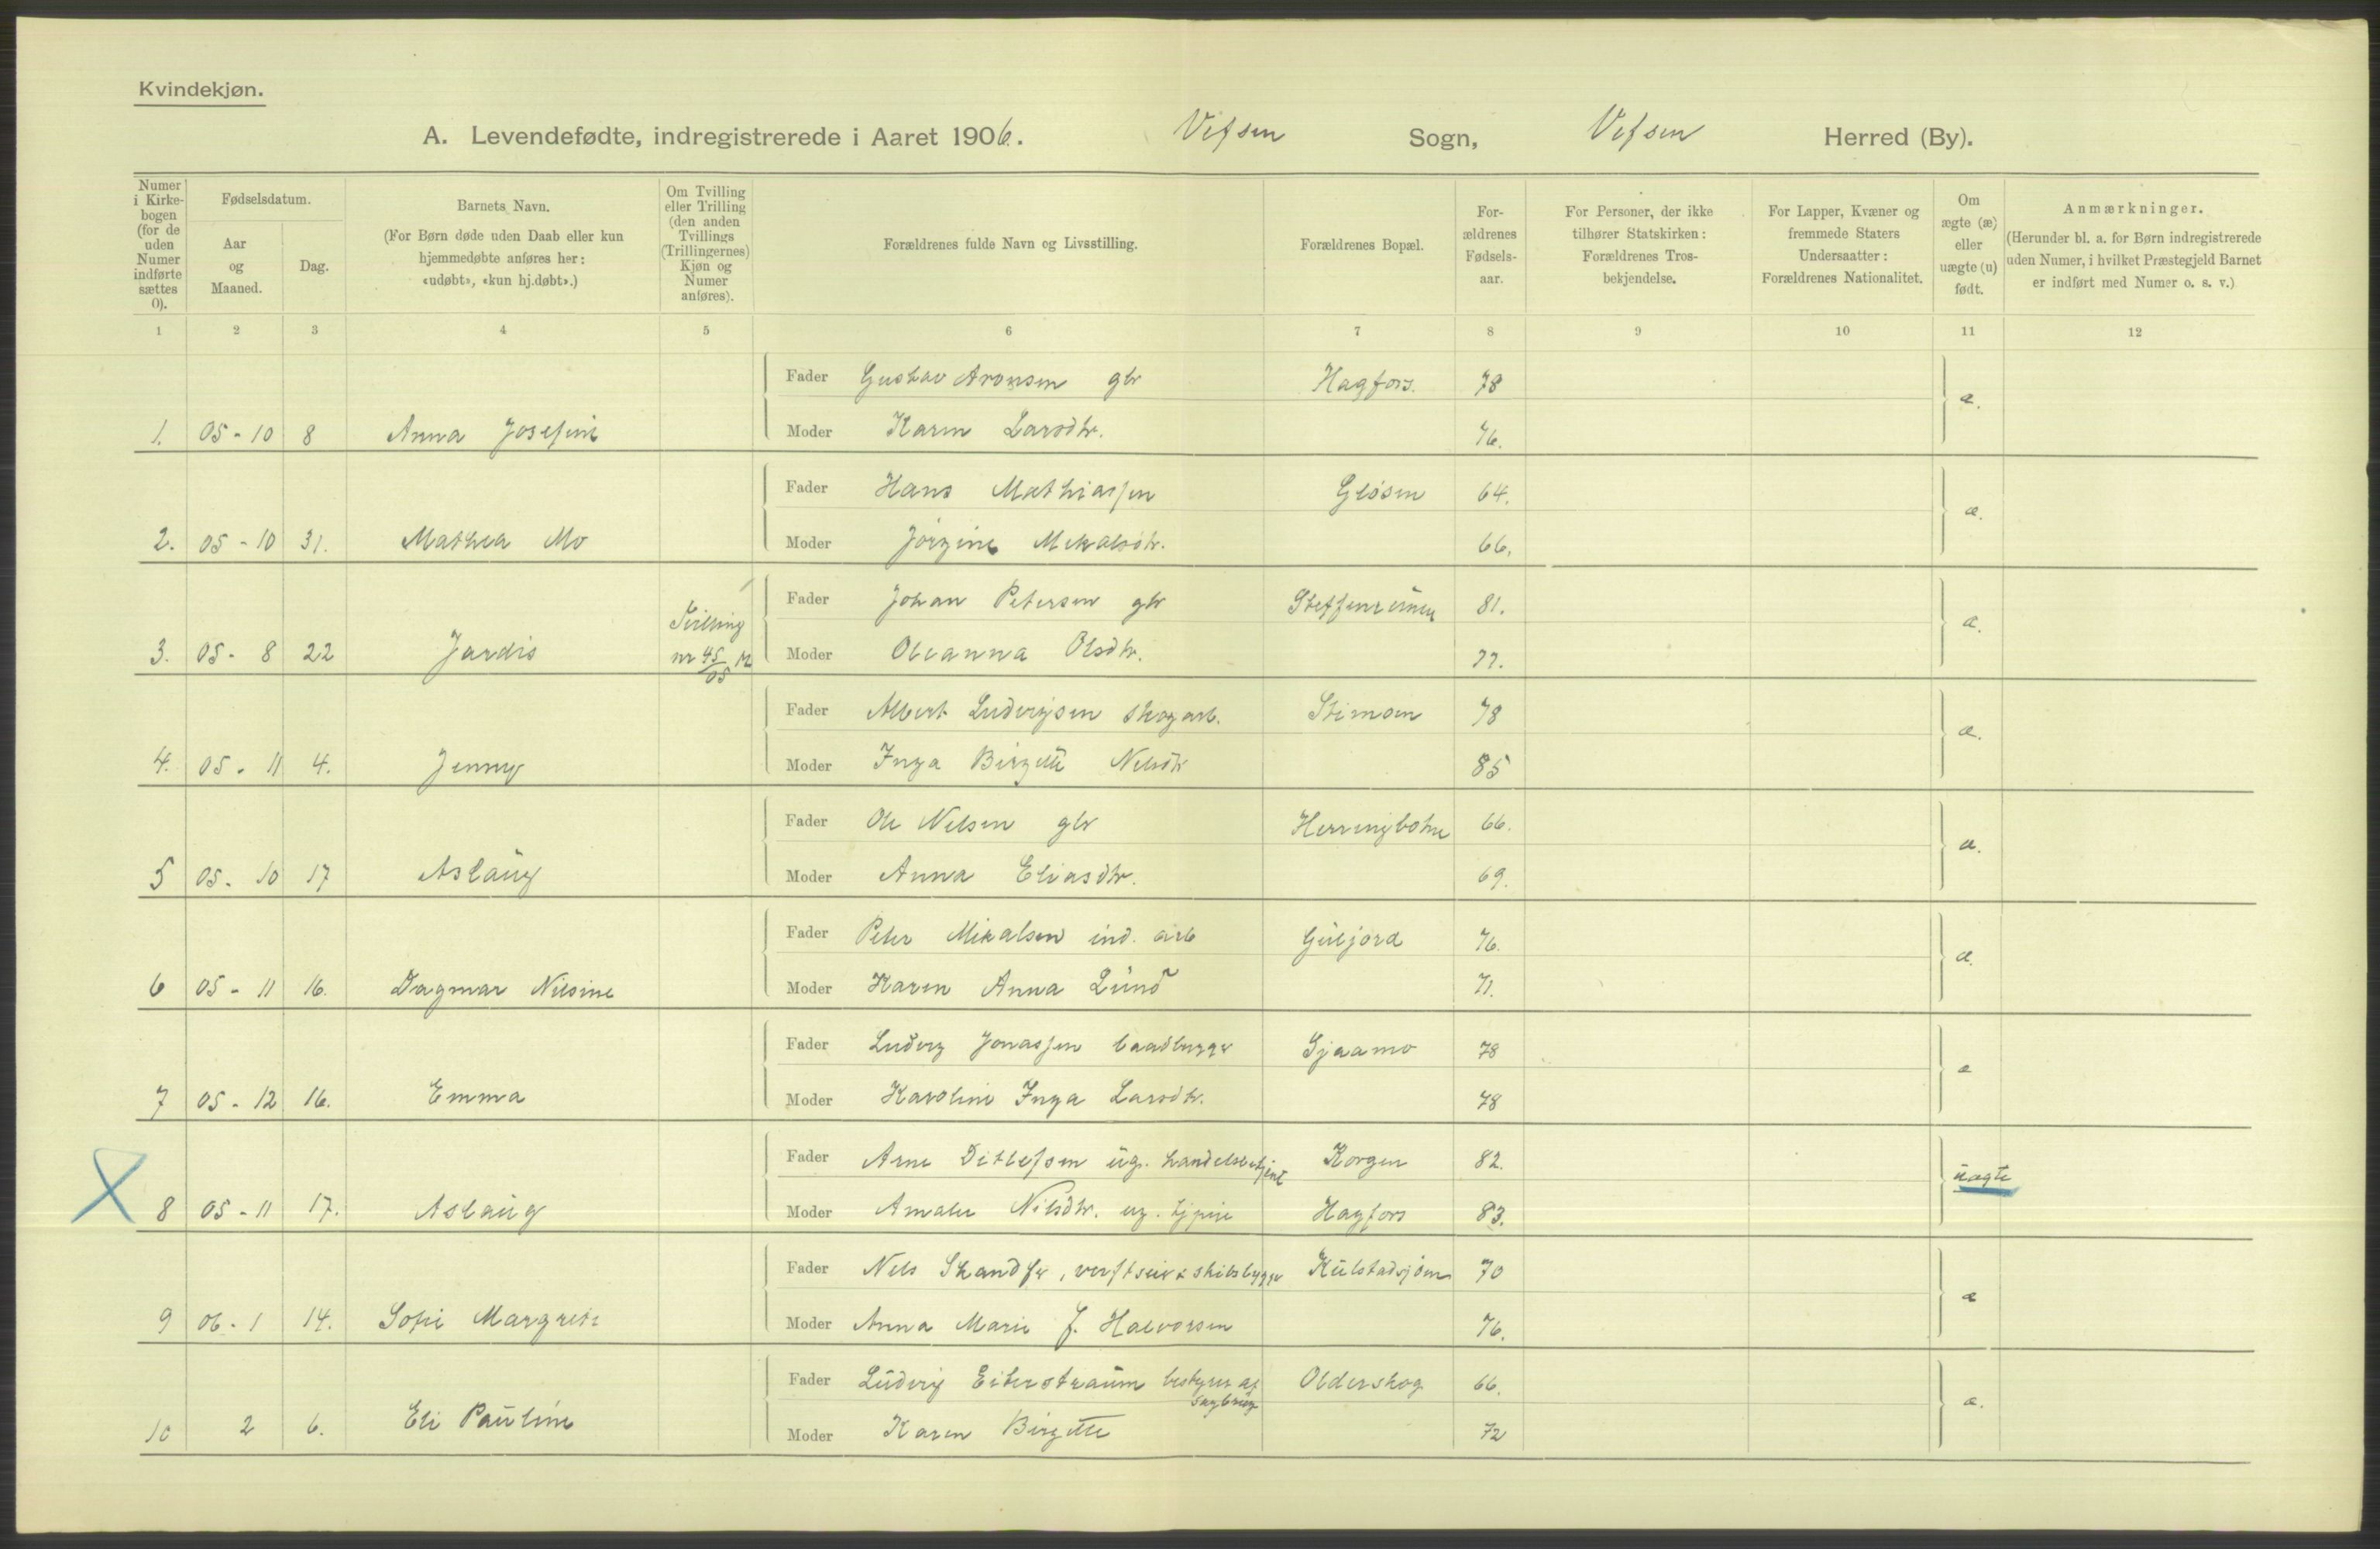 Kvindekjøn.
A. Levendefødte, indregistrerede i Aaret 1906. Vefsen Sogn, Vefsen Herred (By).
Numer i Kirke-bogen (for de uden Numer indførte sættes 0).
Fødselsdatum.
Aar og Maaned.
Dag.
Barnets Navn.
(For Børn døde uden Daab eller kun
hjemmedøbte anføres her:
«udøbt», «kun hj.døbt».)
Om Tvilling
eller Trilling
(den anden
Tvillings
(Trillingernes)
Kjøn og
Numer
anføres).
Forældrenes fulde Navn og Livsstilling.
Forældrenes Bopæl.
For-
ældrenes
Fødsels-
aar.
For Personer, der ikke
tilhører Statskirken:
Forældrenes Tros-
bekjendelse.
For Lapper, Kvæner og
fremmede Staters
Undersaatter:
Forældrenes Nationalitet.
Om
ægte (æ)
eller
uægte (u)
født.
Anmærkninger.
(Herunder bl. a. for Børn indregistrerede
uden Numer, i hvilket Præstegjeld Barnet
er indført med Numer o. s. v.)
1 2 3 4 5 6 7 8 9 10 11 12
Fader Gustav Aronsen gbr Hagfors. 78
æ.
1. 05-10 8 Anna Josefine Moder Karen Larsdtr. 76.
Fader Hans Mathiassen 64.
æ.
2. 05-10 31. Mathea Mo Moder Jørgine Mikalsdtr. 66.
Fader Johan Petersen gbr 81.
Tvilling
æ.
3. 05-8 22 Jardis nr 45/05 M Moder Oleanna Olsdtr. 77.
Fader Albert Ludvigsen skogarb. Stimoen 78
æ.
4. 05-11 4. Jenny Moder Inga Birgitte Nelsdtr 85
Fader Ole Nelsen gbr Herringbotn 66.
æ.
5 05-10 17 Aslaug Moder Anna Eliasdtr. 69.
Fader Peter Mikalsen ind. arb 76.
æ.
6 05-11 16. Dagmar Nilsine Moder Karen Anna Lund 71.
Fader Ludvig Jonassen baadbygger Sjaamo 78
æ
7 05-12 16. Emma Moder Karoline Inga Larsdtr. 78
Fader Arne Ditlefsen ug. handelsbetjent Korgen 82.
uægte
8 05-11 17. Aslaug Moder Amalie Nilsdtr. ug. tjpige Hagfors 83.
Fader Nels Skandfer, verftseier & skibsbygger Kulstadsjøen 70
æ
9 06-1 14. Sofie Margrete Moder Anna Marie J. Halvorsen 76.
Fader Ludvig Eiterstraum bestyrer af Olderskog 66.
sagbrug
æ.
10 2 6. Eli Pauline Moder Karen Birgitte 72